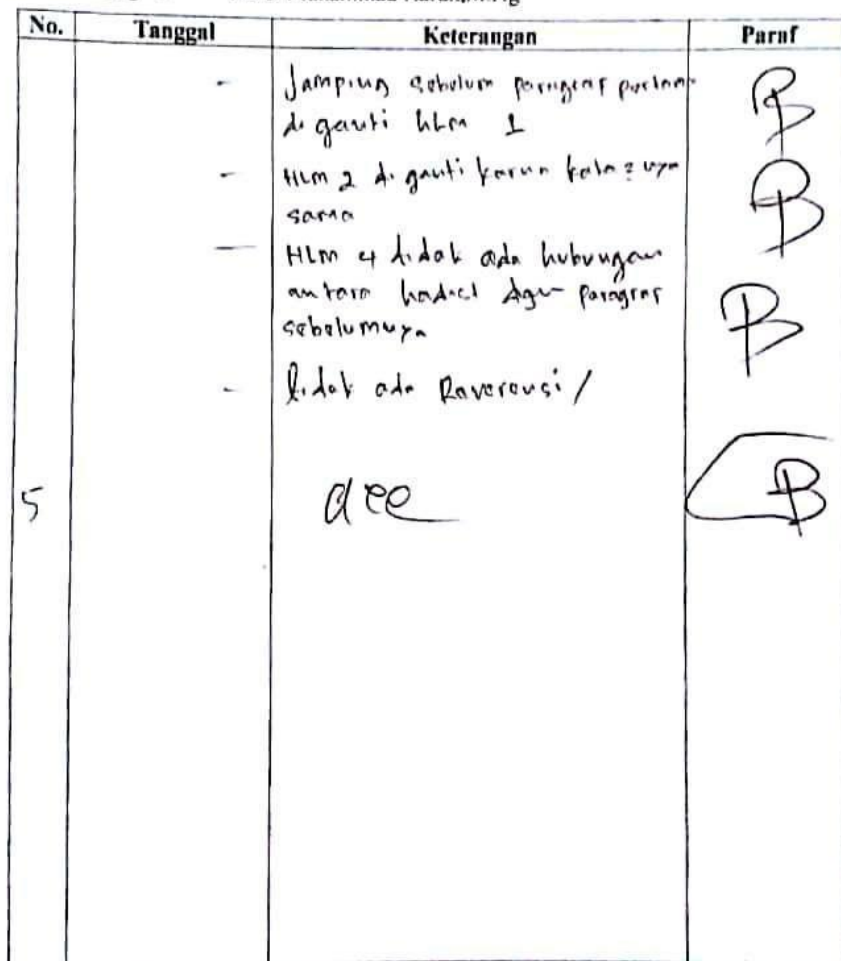 No. Tanggal Keterangan Paraf
- Jamping sebelum paragraf pertama
di ganti hLm 1
- HLm 2 di ganti karna kata2nya
sama
- HLm 4 tidak ada hubungan
antara hadist dgn paragraf
sebelumnya
- tidak ada Raverensi /
5 acc